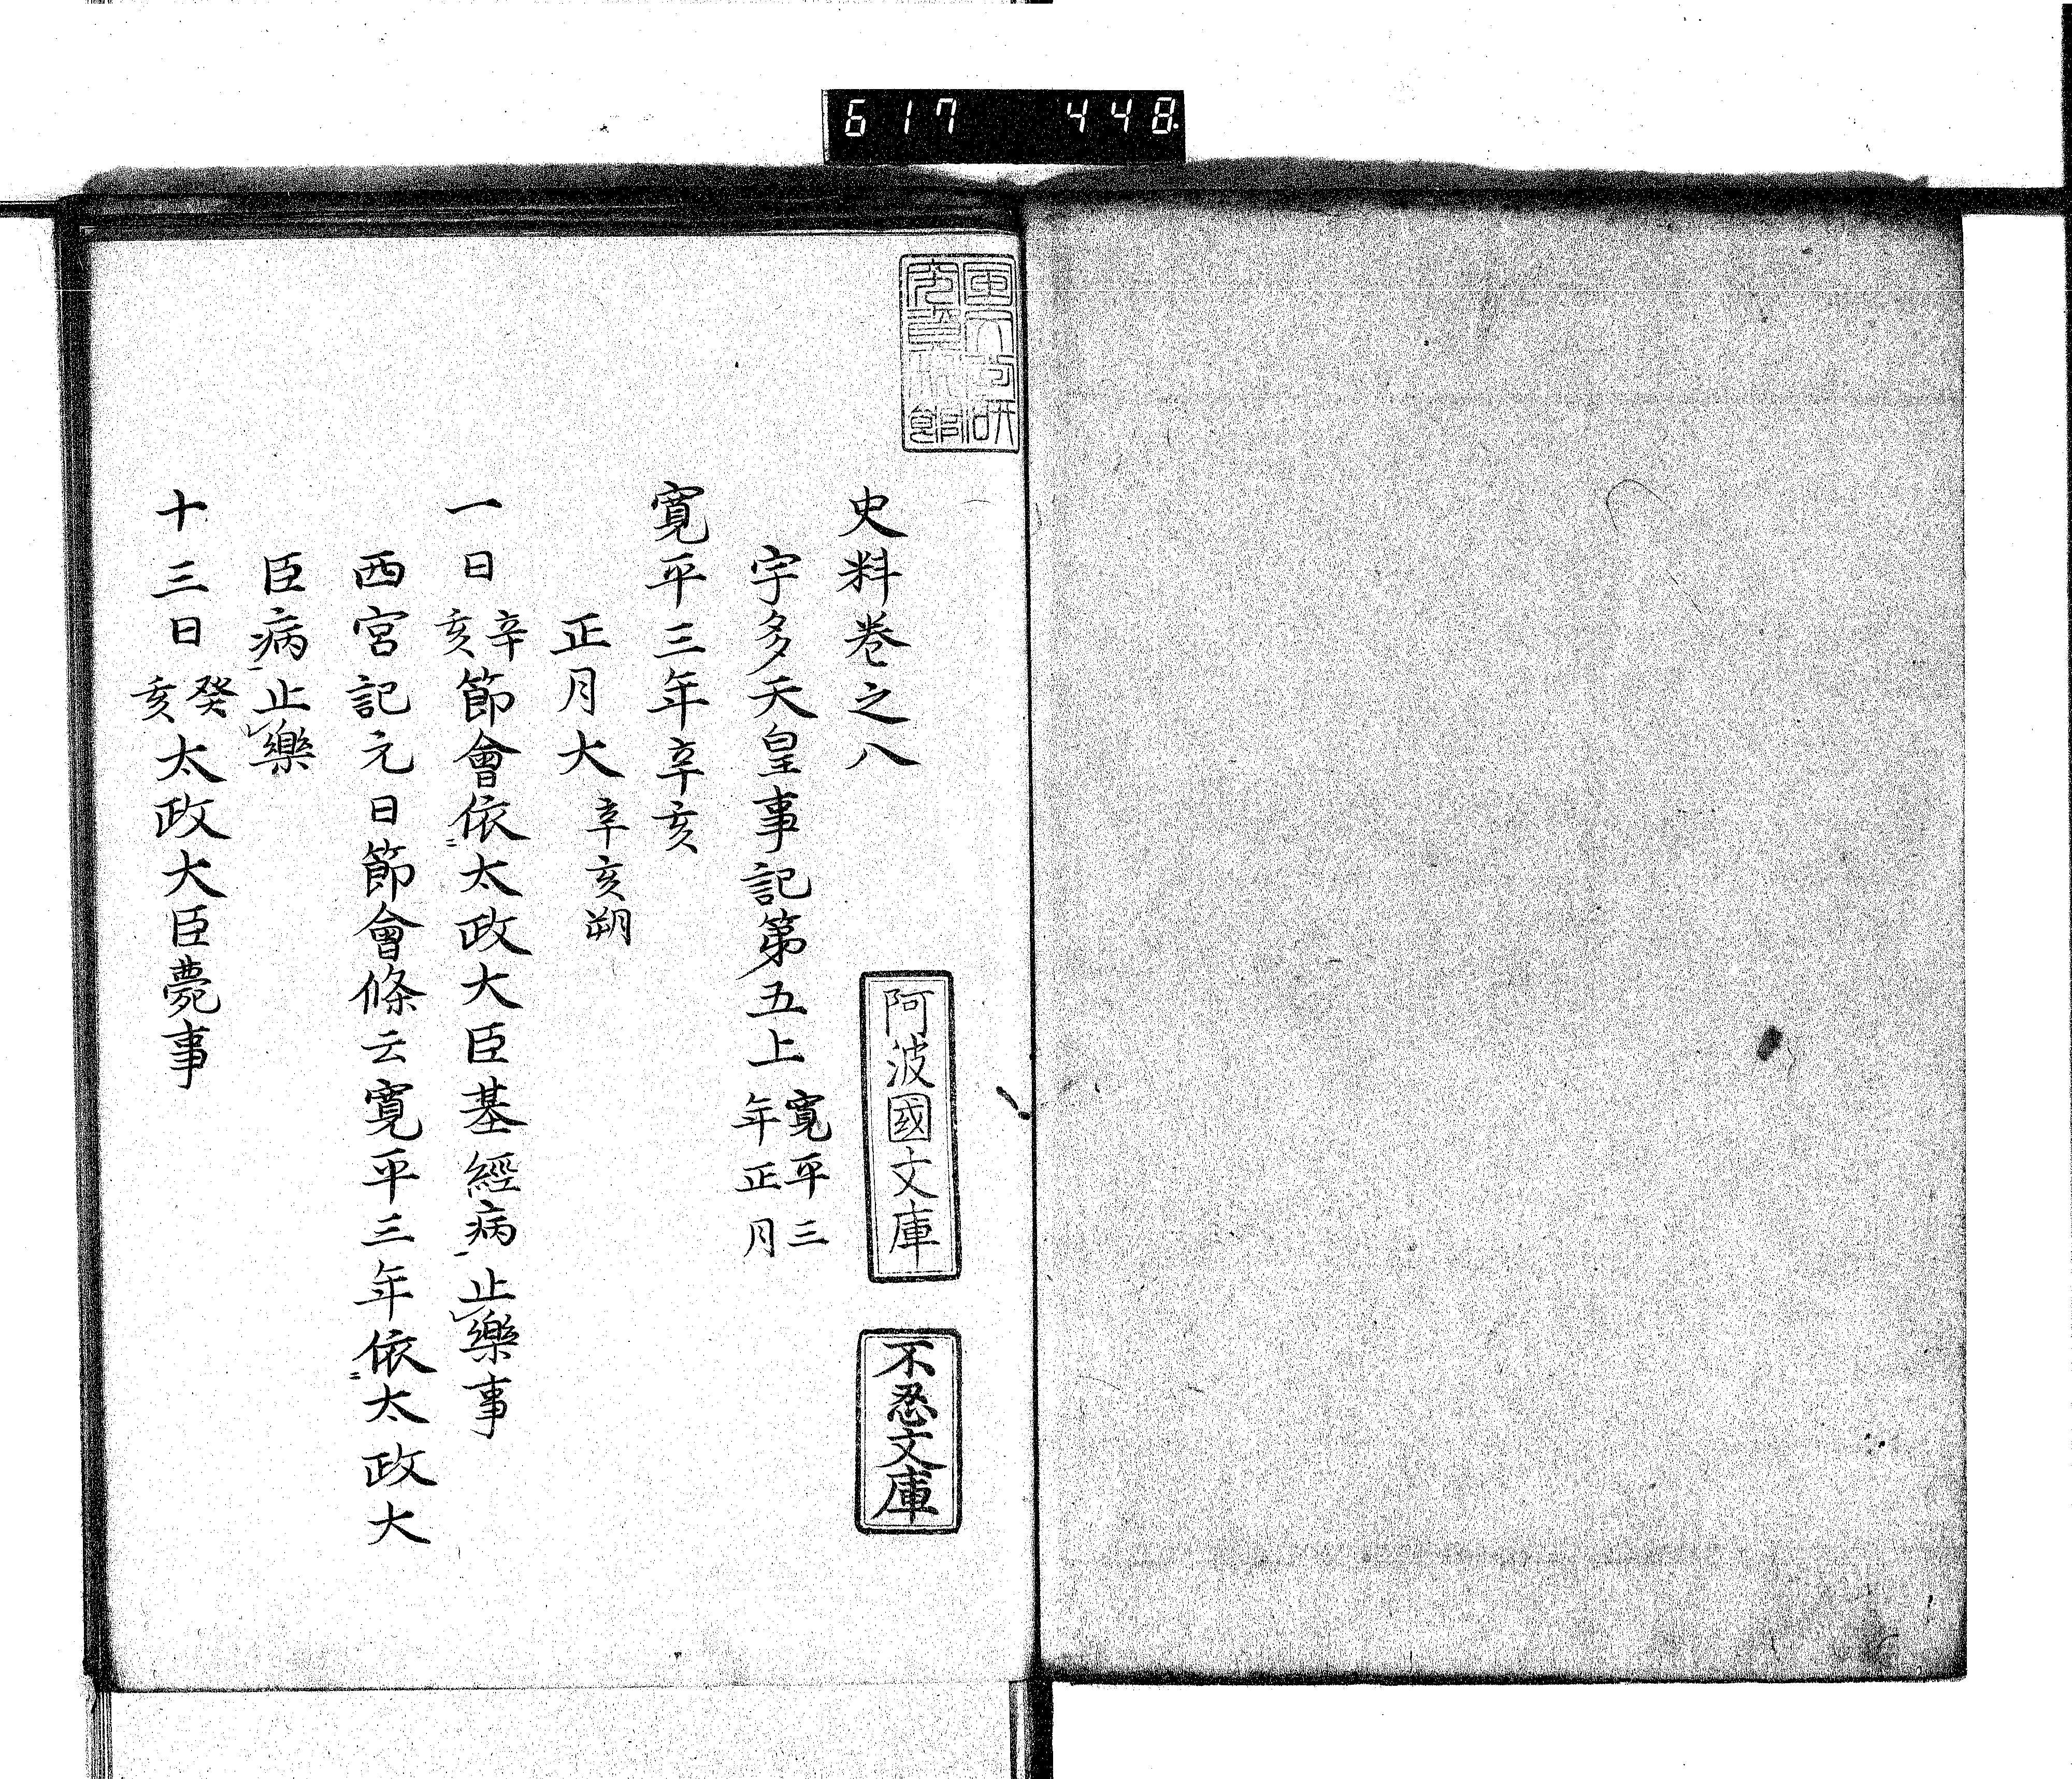 617 448
国文学研
究資料館
史料巻之八
阿波國文庫
不忍文庫
宇多天皇事記第五上 寛平三年正月
寛平三年辛亥
正月大 辛亥朔
一日 辛亥 節會依㆓太政大臣基經病㆒止㆑樂事
西宮記元日節會條云寛平三年依㆓太政大
臣病㆒止㆑樂
十三日 癸亥 太政大臣薨事